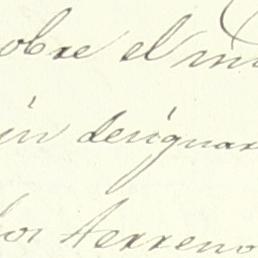 obre el mi
in designar
los terreno